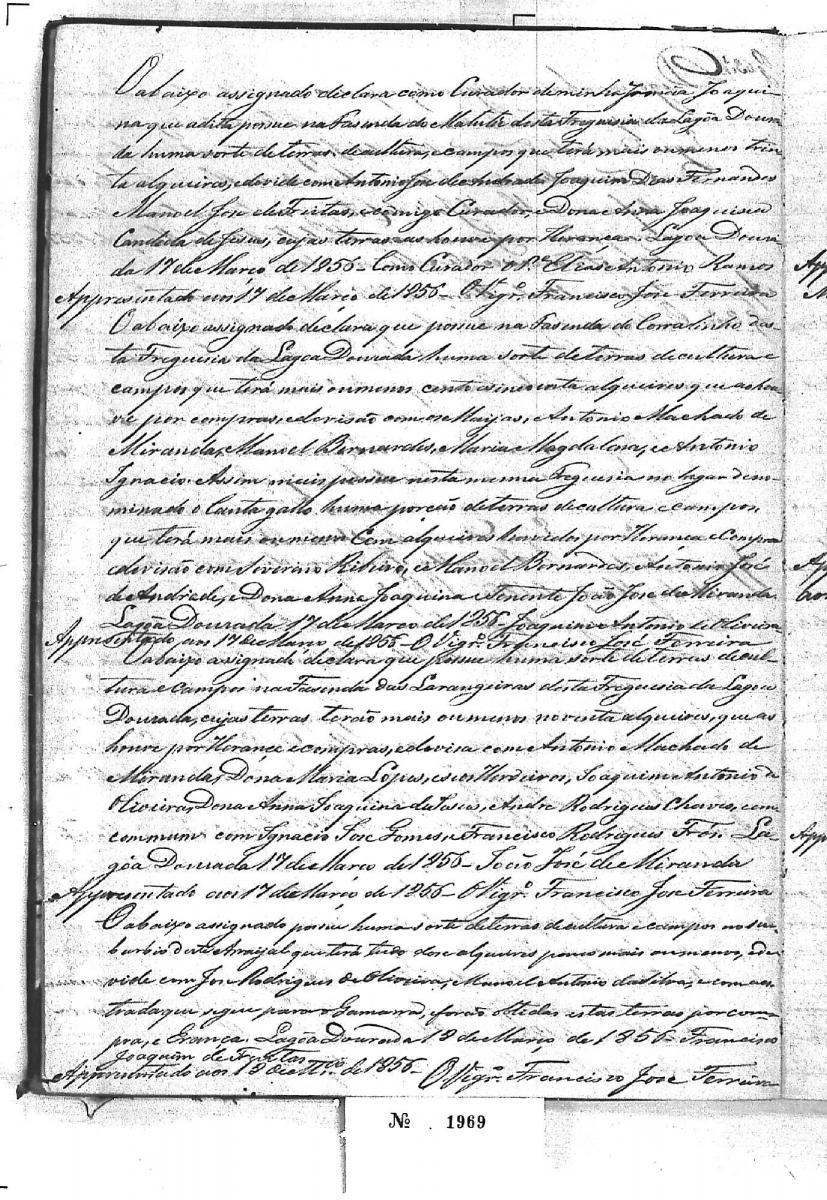 O abaixo assignado declara como Curador de minha Irmãa Joaqui
na que a ditta possue na Fasenda do Matutu desta Freguesia da Lagôa Doura
da huma sorte de terras de cultura, e campos que terá mais ou menos trin
ta alqueires, e devide com Antonio José de Andrade Joaquim Dias Fernandes
Manoel José de Freitas, e comigo Curador, e Dona Anna Joaquina
Candida de Jesus, cujas terras as houve por Herança. Lagôa Doura
da 17 de Março de 1856 - Como Curador o Pe. Elias Antonio Ramos
Appresentado aos 17 de Março de 1856 - O Vigro. Francisco José Ferreira
O abaixo assignado declara que possue na Fasenda do Corralinho des
ta Freguesia da Lagoa Dourada huma sorte de terras de cultura e
campos que terá mais ou menos cento e sincoenta alqueires que as hou
ve por compras, e devisão com os Maijas, Antonio Machado de
Miranda, Manoel Bernardes, e Maria Magdalena, e Antonio
Ignacio. Assim mais possue nesta mesma Freguesia no lugar deno-
minado o Cantagallo huma porção de terras de cultura e campos
que terá mais ou menos Cem alqueires havidos por Herança e Compra
e devisão com Severino Ribeiro, e Manoel Bernardes, Antonio José
de Andrade, e Dona Anna Joaquina e Tenente João José de Miranda.
Lagôa Dourada 17 de Março de 1856 - Joaquim Antonio de Oliveira
Appresentado aos 17 de Março de 1856 - O Vigro. Francisco José Ferreira
O abaixo assignado declara que possue huma sorte de terras de cul
tura e campos na Fasenda das Larangeiras desta Freguesia da Lagoa
Dourada, cujas terras terão mais ou menos noventa alqueires, que as
houve por Herança e compras, e devisa com Antonio Machado de
Miranda, Dona Maria Lopes, e seos Herdeiros, Joaquim Antonio de
Oliveira, Dona Anna Joaquina de Jesus, e Andre Rodrigues Chaves, e em
commum com Ignacio José Gomes, e Francisco Rodrigues La
gôa Dourada 17 de Março de 1856 - João José de Miranda
Appresentado aos 17 de Março de 1856 - O Vigro. Francisco José Ferreira
O abaixo assignado possue huma sorte de terras de cultura e campos no su
burbio deste Arraijal que terá tudo dose alqueires pouco mais ou menos, e de
vide com José Rodrigues de Oliveira, e Manoel Antonio da Silva, e com a es
trada que segue para o Gamarra, e forão obtedas estas terras por com
pra, e Erança. Lagôa Dourada 18 de Março de 1856 - Francisco
Joaquim de Freitas
Appresentado aos 18 de Mço. de 1856 - O Vigro. Francisco José Ferreira
№ 1969